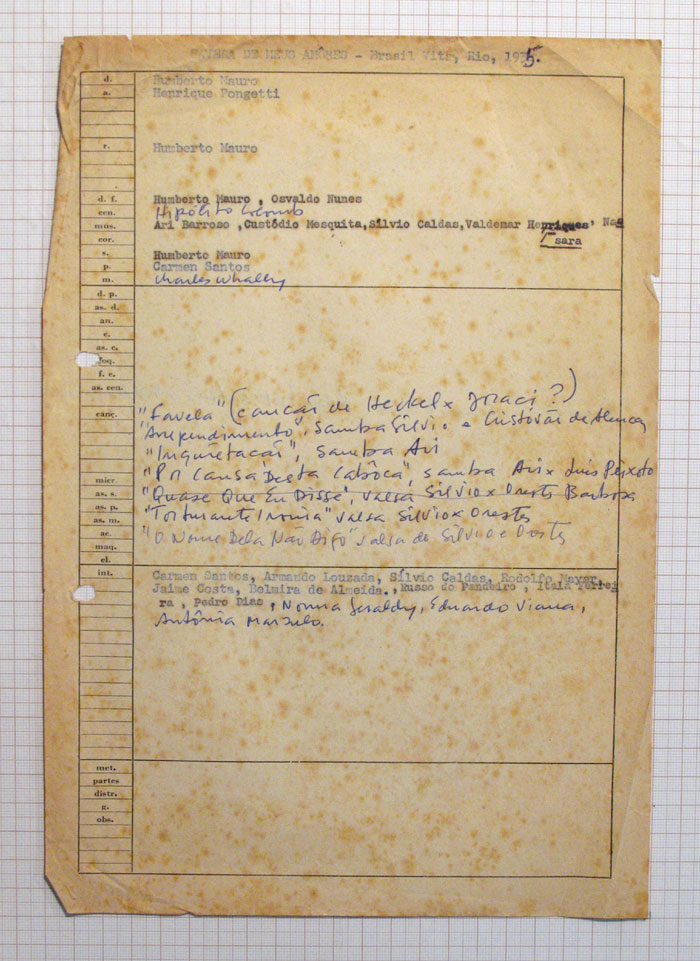 FAVELA DE MEUS AMÔRES - Brasil Vita, Rio, 1935.
d. Humberto Mauro
a. Henrique Pongetti
r. Humberto Mauro
d. f. Humberto Mauro , Osvaldo Nunes
cen. Hipólito Colomb
mús. Ari Barroso ,Custódio Mesquita,Sílvio Caldas,Valdemar Henriques, Nas
cor. sara
s. Humberto Mauro
p. Carmen Santos
m. Charles Whally
d. p.
as. d.
an.
c.
as. c.
loq.
f. c.
as. cen.
canç. "Favela" (canção de Heckel x Joraci ?)
"Arrependimento", Samba Sílvio e Cristóvão de Alencar
"Inquietação", samba Ari
"Por Causa Desta Cabôca", samba Ari x Luis Peixoto
micr.
as. s. "Quase Que Eu Disse", valsa Sílvio x Orestes Barbosa
as. p.
as. m. "Torturante Ironia" valsa Sílvio x Orestes
ac.
maq. "O Nome Dela Não Digo" valsa de Sílvio e Orestes
el.
int. Carmen Santos, Armando Louzada, Sílvio Caldas, Rodolfo Mayer,
Jaime Costa, Belmira de Almeida.,Russo do Pandeiro , Itala Ferrei
ra , Pedro Dias , Norma Geraldy, Eduardo Viana,
Antônia Marzulo.
met.
partes
distr.
g.
obs.